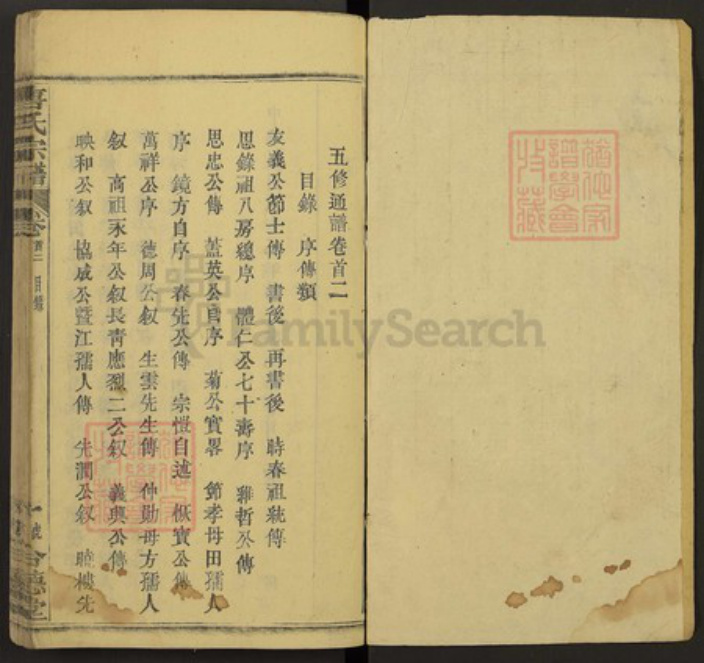 五修通譜卷首二
目錄 序傳類
友義公節士傳 書後 再書後 時春祖統傳
思錄祖八房總序 體仁公七十壽序 雅哲公傳
思忠公傳 蓋英公自序 菊公實畧 節孝母田孺人
序 鏡方自序 春先公傳 宗愷自述 公傳
萬祥公序 德周公叙 生雲先生傳 仲勤母方孺人
叙 高祖永年公叙 長青應烈二公叙 義興公傳
映和公叙 協成公暨江孺人傳 先潤公叙 曉樓先
氏宗譜
首二 目錄
德堂
FamilySearch